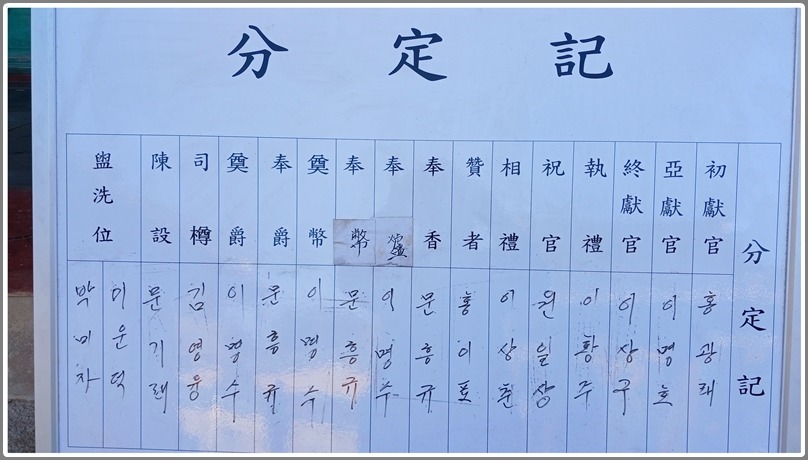 分定記
分定記
初獻官 홍광래
亞獻官 이명호
終獻官 이상구
執禮 이황주
祝官 원일상
相禮 이상춘
贊者 홍이표
奉香 문흥규
奉爐 이명수
奉幣 문흥규
奠幣 이명수
奉爵 문흥규
奠爵 이명수
司樽 김영웅
陳設 문기래
盥洗位 이운덕
박미자